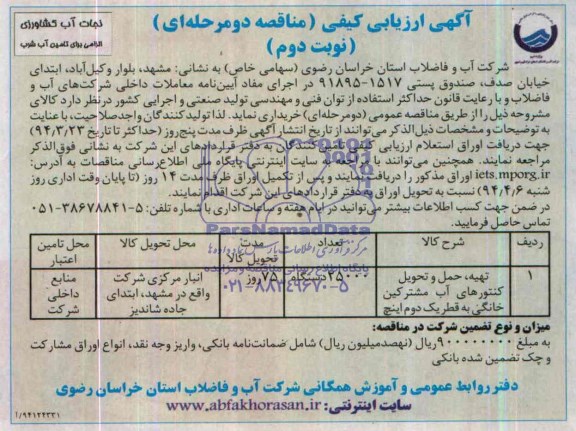 آگهی ارزیابی کیفی (مناقصه دومرحله‌ای)
(نوبت دوم)
نجات آب کشاورزی
الزامی برای تامین آب شرب
شرکت آب و فاضلاب استان خراسان رضوی (سهامی خاص) به نشانی: مشهد، بلوار وکیل‌آباد، ابتدای
خیابان صدف، صندوق پستی ۱۵۱۷-۹۱۸۹۵ در اجرای مفاد آیین‌نامه معاملات داخلی شرکت‌های آب و
فاضلاب و با رعایت قانون حداکثر استفاده از توان فنی و مهندسی تولید صنعتی و اجرایی کشور درنظر دارد کالای
مشروحه ذیل را از طریق مناقصه عمومی (دومرحله‌ای) خریداری نماید. لذا تولیدکنندگان واجدصلاحیت، با عنایت
به توضیحات و مشخصات ذیل‌الذکر می‌توانند از تاریخ انتشار آگهی ظرف مدت پنج‌روز (حداکثر تا تاریخ ۹۴/۳/۲۳)
جهت دریافت اوراق استعلام ارزیابی کیفی تامین‌کنندگان به دفتر قراردادهای این شرکت به نشانی فوق‌الذکر
مراجعه نمایند. همچنین می‌توانند با مراجعه به سایت اینترنتی پایگاه ملی اطلاع‌رسانی مناقصات به آدرس:
iets.mporg.ir اوراق مذکور را دریافت نمایند و پس از تکمیل اوراق ظرف مدت ۱۴ روز (تا پایان وقت اداری روز
شنبه ۹۴/۴/۶) نسبت به تحویل اوراق به دفتر قراردادهای این شرکت اقدام نمایند.
در ضمن جهت کسب اطلاعات بیشتر می‌توانید در ایام هفته و ساعات اداری با شماره تلفن: ۵-۳۸۶۷۸۸۴۱-۰۵۱
تماس حاصل فرمایید.
ParsNamadData
مرکز فرآوری اطلاعات پارس نماد داده‌ها
پایگاه اطلاع رسانی مناقصه و مزایده
۰۲۱-۸۸۳۴۹۶۷۰-۵
ردیف شرح کالا تعداد مدت تحویل کالا محل تحویل کالا محل تامین اعتبار
۱ تهیه، حمل و تحویل کنتورهای آب مشترکین خانگی به قطر یک دوم اینچ ۲۵۰۰۰ دستگاه ۷۵ روز انبار مرکزی شرکت واقع در مشهد، ابتدای جاده شاندیز منابع داخلی شرکت
میزان و نوع تضمین شرکت در مناقصه:
به مبلغ ۹۰۰۰۰۰۰۰۰ ریال (نهصدمیلیون ریال) شامل ضمانت‌نامه بانکی، واریز وجه نقد، انواع اوراق مشارکت
و چک تضمین شده بانکی
دفتر روابط عمومی و آموزش همگانی شرکت آب و فاضلاب استان خراسان رضوی
سایت اینترنتی: www.abfakhorasan.ir